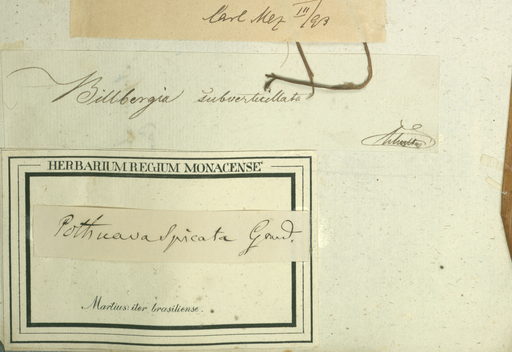 Carl Mez III/93
Billbergia subverticillata
HERBARIUM REGIUM MONACENSE
Pothuava spicata Gaud.
Martius: iter brasiliense.